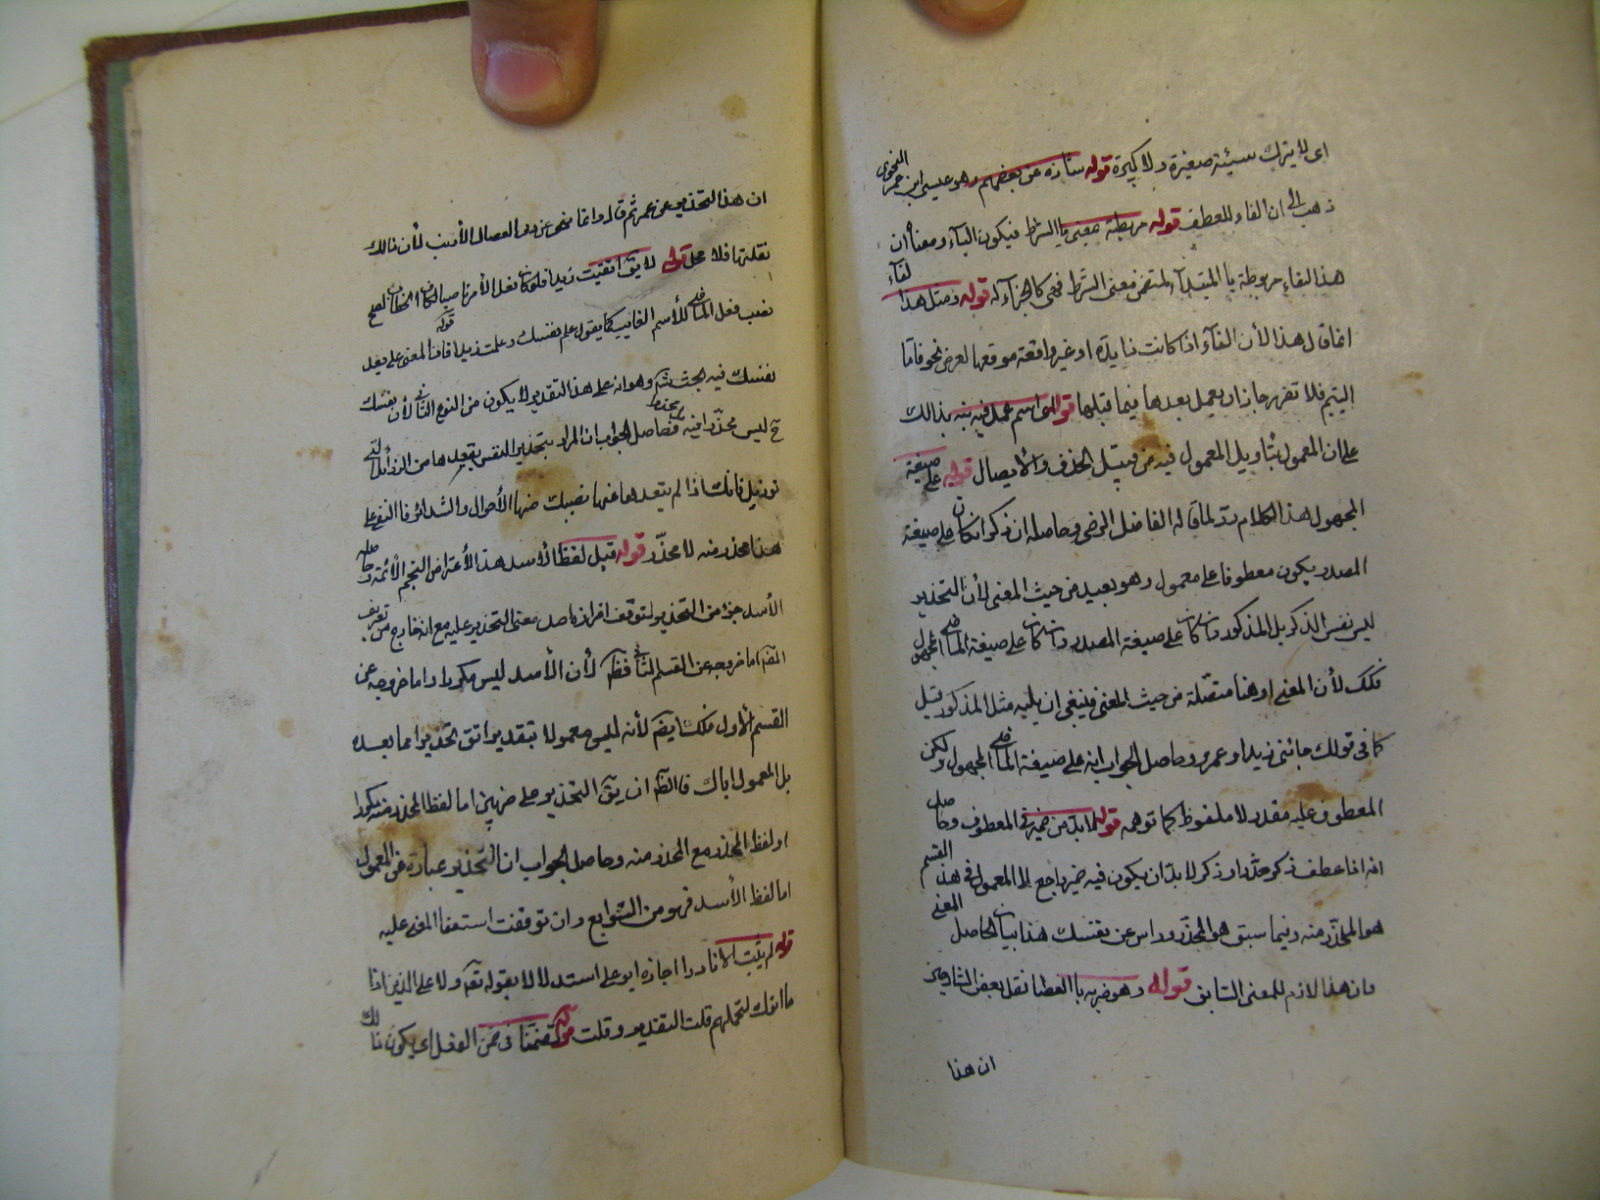 اى لا يترك سيئة صغيرة ولا كبيرة قوله شاذة عن بعضهم وهو عيسى ابن عمر النحوى
ذهب الى ان الفاء للعطف قوله مربطة بمعنى يا الشرط فيكون الباء ومعناه ان
هذا الفاء مربوطة يا المبتدأ لمتضمن معنى الشرط فهى كالجزآء له قوله ومثل هذا الفآء
انما قال هذا لأن الفآء اذا كانت زايدة او غير واقعة موقعها لغرض نحو فاما
اليتيم فلا تقهر جاز ان يعمل بعدها فيما قبلها قوله اى اسم عمل فيه نبه بذالك
على ان المعمول بتأويل المعمول فيه من قبيل الحذف والايصال قوله على صيغة
المجهول هذا الكلام رد لما قاله الفاضل الرضى وحاصله ان ذكر ان كان على صيغة
المصدر يكون معطوفا على معمول وهو بعيد من حيث المعنى لأن التحذير
ليس نفس الذكر بل المذكور وان كان على صيغة المصدر وان كان على صيغة الماضى المجهول
فكك لأن المعنى او هنا متصلة من حيث المعنى فينبغى ان يليه مثل المذكور قبل
كما فى قولك جائنى زيد او عمرو وحاصل الجواب انه على صيغة الماضى المجهول ولكن
المعطوف عليه مقدر لا ملفوظ كما توهم قوله لابد من ضمير فى المعطوف وحاصله
انه اذا عطف ذكر على حذر او ذكر لا بد ان يكون فيه ضمير راجع الى المعمول فى هذا القسم
هو المحذر منه وفيما سبق هو المحذر وراس عن نفسك هذا بيان الحاصل المعنى
وان هذا لازم للمعنى السابق قوله وهو ضربه با العصا نقل بعض الشارحين
ان هذا
ان هذا التحذير عن عمر ثم قال وانما نهى عن دق العصا الأرنب لأن ذالك
يقتلها فلا يحل قوله لا يق اتقيت زيدا فلو كان فعل الأمر ناصبا لكاف الخطاب لصح
نصب فعل الماضى للأسم الغايب كما يقول علم نفسك وعلمت زيدا قوله فان المعنى على بعد
نفسك فيه بحث وهو انه على هذا التقدير لا يكون من النوع الثانى لأن نفسك
ح ليس محذرا فيه فحاصل الجواب ان المراد بتحذير النفس بتبعيدها من الرذائل التى
توذيك فانك اذا لم تبعدها عنها نصيبك منها الأهوال والشدائد فالنفع على
هذا محذر منه لا محذر قوله قيل لفظ الأسد هذا الأعتراض لنجم الأئمة وحاصله
الأسد جزء من التحذير لتوقف افراد اصل معنى التحذير عليه مع انه خارج من تعريف
المص اما خروجه عن القسم الثانى فظ لأن الأسد ليس مكررا واما خروجه عن
القسم الأول فكك ايضا لأنه ليس معمولا بتقدير اتق تحذيرا مما بعده
بل المعمول اياك فالظ ان يق التحذير على ضربين اما لفظ المحذر منه مكررا
او لفظ المحذر مع المحذر منه وحاصل الجواب ان التحذير عبارة عن المعمول
اما لفظ الأسد فهو من التوابع وان توقفت استعفا المعنى عليه
قوله لم يثبت الا نادرا اجازه ابو على استدلالا بقوله تعه ولا على الذين اذا
ما اتوك لتحملهم قلت التقدير وقلت قوله تضمنا فى ضمن الفعل اى يكون ذالك